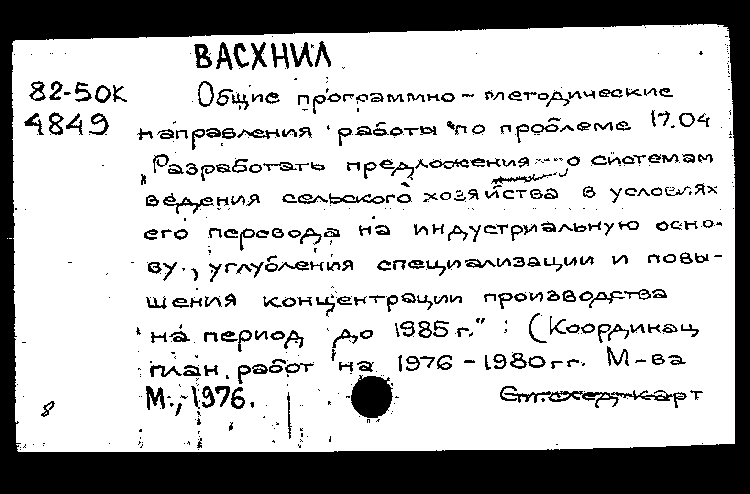 ВАСХНИЛ
82-5ОК Общие программно-методические
4849 направления работы по проблеме 17.04
„Разработать предложения о системам
ведения сельского хозяйства в условиях
его перевода на индустриальную осно-
ву, углубления специализации и повы-
шения концентрации производства
на период до 1985 г." : (Координац
план. работ на 1976-1980 гг. М-ва
М., 1976.
8